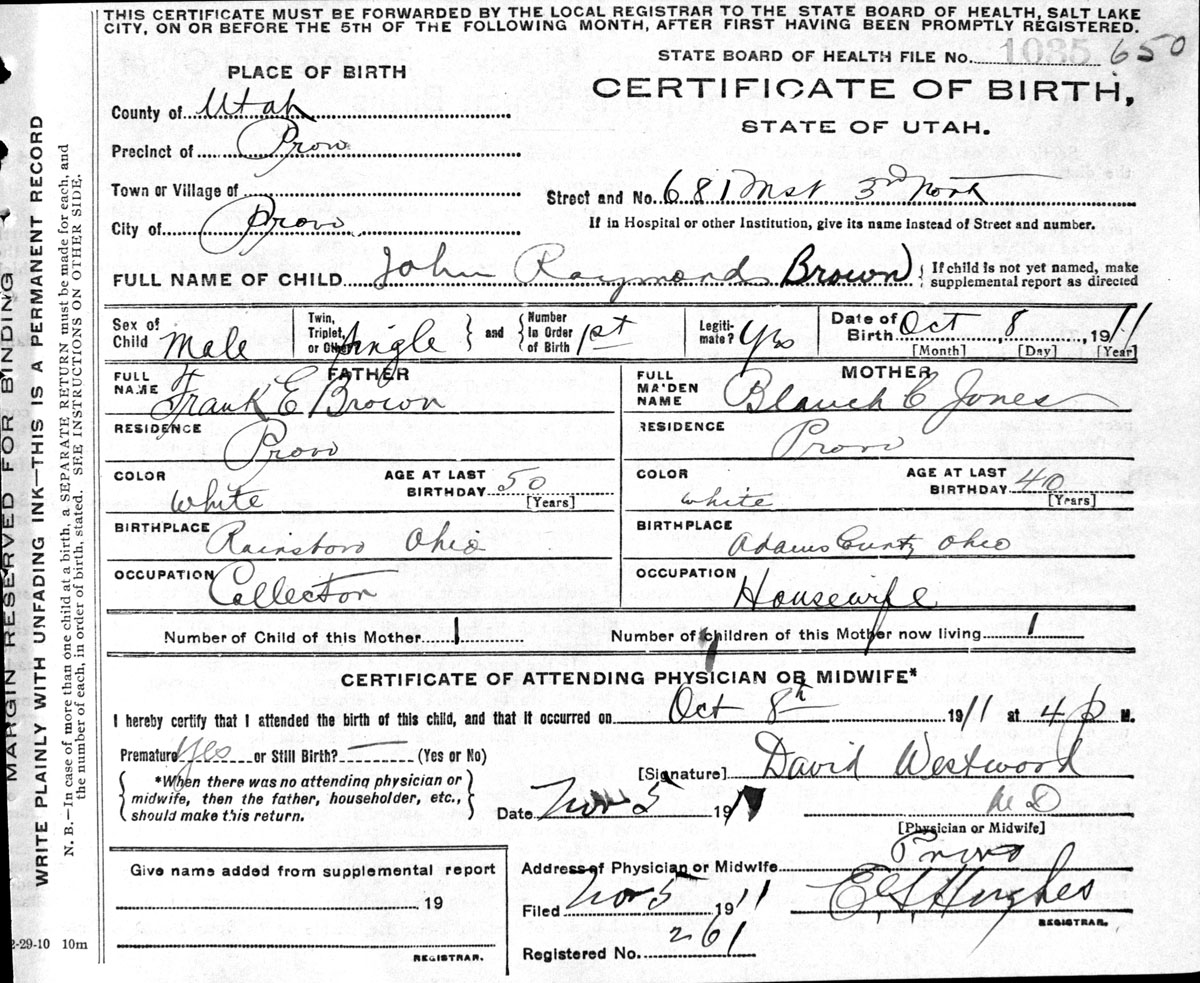 THIS CERTIFICATE MUST BE FORWARDED BY THE LOCAL REGISTRAR TO THE STATE BOARD OF HEALTH, SALT LAKE
CITY, ON OR BEFORE THE 5TH OF THE FOLLOWING MONTH, AFTER FIRST HAVING BEEN PROMPTLY REGISTERED.
STATE BOARD OF HEALTH FILE No. 1085 650
PLACE OF BIRTH
CERTIFICATE OF BIRTH,
STATE OF UTAH.
County of Utah
Precinct of Provo
Town or Village of
Street and No. 681 West 3rd North
City of Provo
If in Hospital or other Institution, give its name instead of Street and number.
FULL NAME OF CHILD John Raymond Brown { If child is not yet named, make
supplemental report as directed
Sex of Child Male
Twin, Triplet, or Other? Single } and { Number In Order of Birth 1st
Legitimate? Yes
Date of Birth Oct 8, 1911
[Month] [Day] [Year]
FATHER
FULL NAME Frank E Brown
MOTHER
FULL MAIDEN NAME Blanch C Jones
RESIDENCE Provo
RESIDENCE Provo
COLOR White AGE AT LAST BIRTHDAY 50 [Years]
COLOR White AGE AT LAST BIRTHDAY 40 [Years]
BIRTHPLACE Rainsboro Ohio
BIRTHPLACE Adams County Ohio
OCCUPATION Collector
OCCUPATION Housewife
Number of Child of this Mother 1 Number of children of this Mother now living 1
CERTIFICATE OF ATTENDING PHYSICIAN OR MIDWIFE*
I hereby certify that I attended the birth of this child, and that it occurred on Oct 8th 1911 at 4 p M.
Premature Yes or Still Birth? — (Yes or No)
*When there was no attending physician or
midwife, then the father, householder, etc.,
should make this return.
[Signature] David Westwood
M D
[Physician or Midwife]
Date Nov 5 191
Address of Physician or Midwife Provo
Filed Nov 5 1911 E S Hughes
REGISTRAR.
Registered No. 261
Give name added from supplemental report
19
REGISTRAR.
2-29-10 10m
MARGIN RESERVED FOR BINDING
WRITE PLAINLY WITH UNFADING INK—THIS IS A PERMANENT RECORD
N. B.—In case of more than one child at a birth, a SEPARATE RETURN must be made for each, and
the number of each, in order of birth, stated. SEE INSTRUCTIONS ON OTHER SIDE.